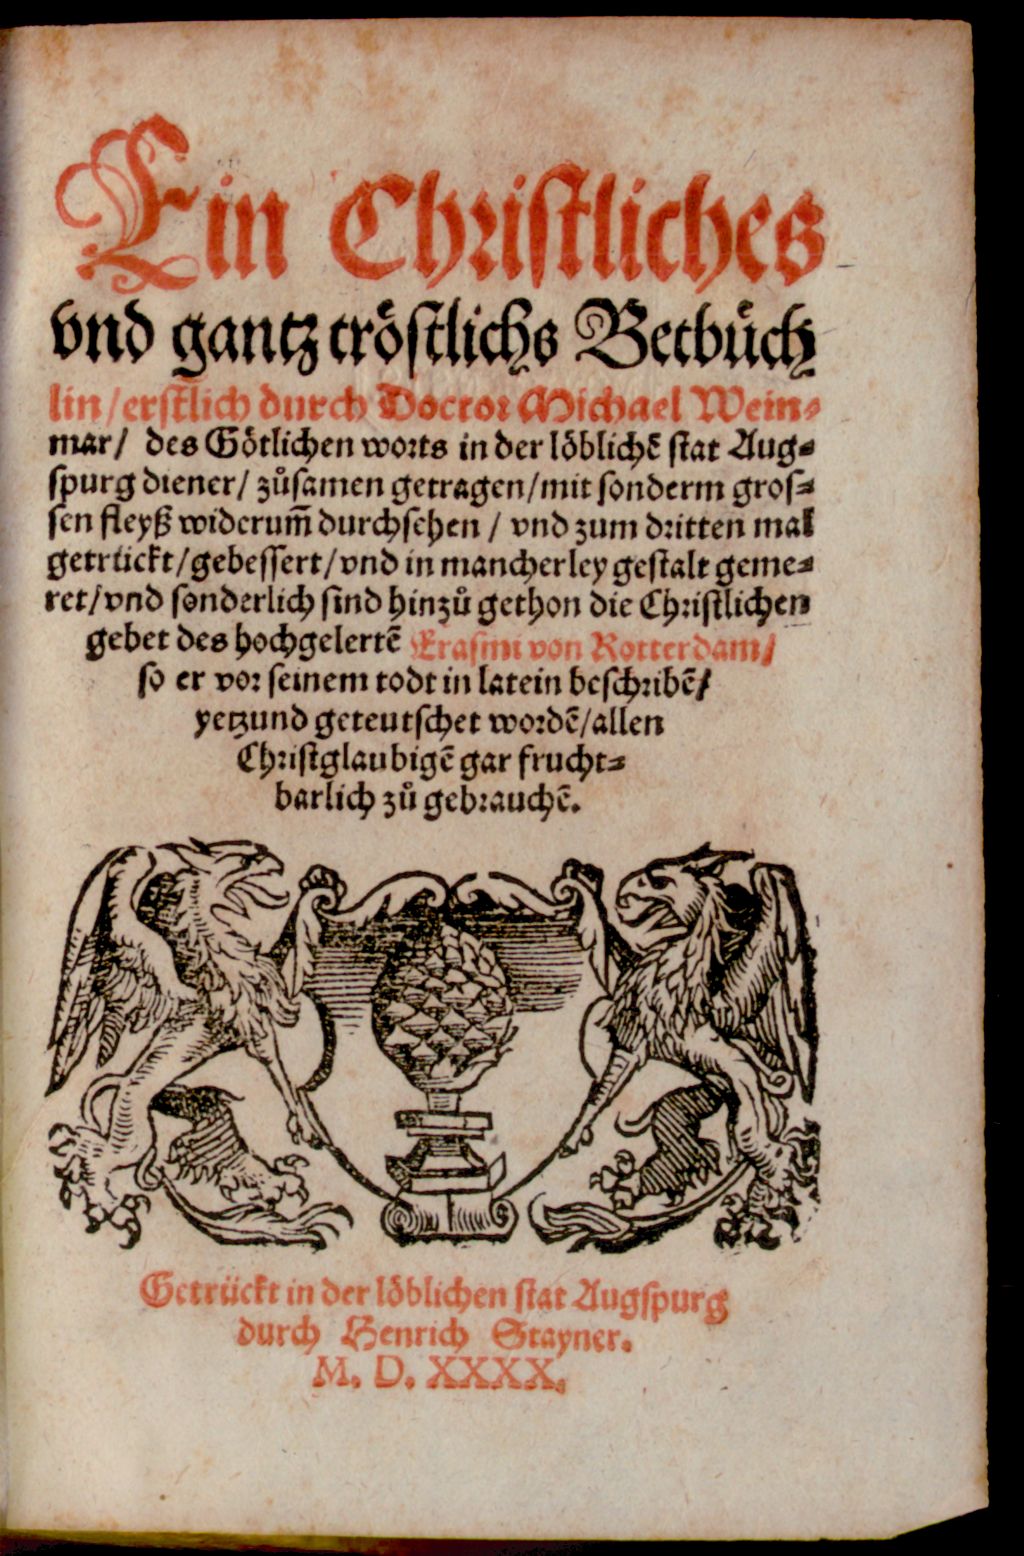 Ein Christliches
vnd gantz tröstlichs Betbüch
lin / erstlich durch Doctor Michael Wein⸗
mar / des Götlichen worts in der löblichẽ stat Aug⸗
spurg diener / zůsamen getragen / mit sonderm gros⸗
sen fleyß widerum̃ durchsehen / vnd zum dritten mal
getrückt / gebessert / vnd in mancherley gestalt geme⸗
ret / vnd sonderlich sind hinzů gethon die Christlichen
gebet des hochgelertẽ Erasmi von Rotterdam /
so er vor seinem todt in latein beschribẽ /
yetzund geteutschet wordẽ / allen
Christglaubigẽ gar frucht⸗
barlich zů gebrauchẽ.
Getrückt in der löblichen stat Augspurg
durch Henrich Stayner.
M. D. XXXX.